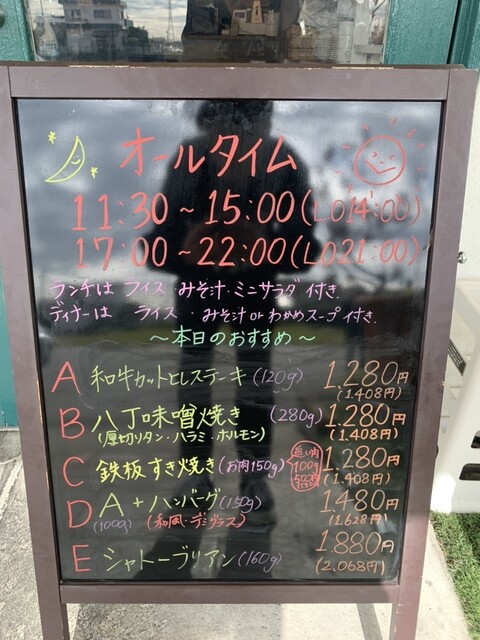 オールタイム
11:30~15:00(LO14:00)
17:00~22:00(LO21:00)
ランチは ライス・みそ汁・ミニサラダ付き
ディナーは ライス・みそ汁orわかめスープ付き
~本日のおすすめ~
A 和牛カットヒレステーキ(120g) 1,280円
(1.408円)
B 八丁味噌焼き(280g) 1,280円
(厚切りタン・ハラミ・ホルモン) (1.408円)
C 鉄板すき焼き(お肉150g) 1,280円
(1.408円)
追い肉
100g
500円
D A+ハンバーグ(150g) 1,480円
(100g) (和風・デミグラス) (1.628円)
E シャトーブリアン(160g) 1.880円
(2.068円)